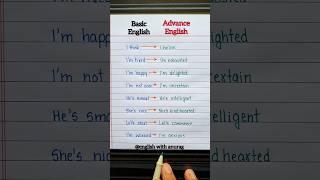 Basic Advance
English English
I think → I believe
I'm tired → I'm exhausted
I'm happy → I'm delighted
I'm not sure → I'm uncertain
He's smart → He's intelligent
She's nice → She's kind hearted
Let's start → Let's commence
I'm worried → I'm anxious
@english with anurag
I'm hap lighted
I'm not certain
He's sm elligent
She's ni hearted